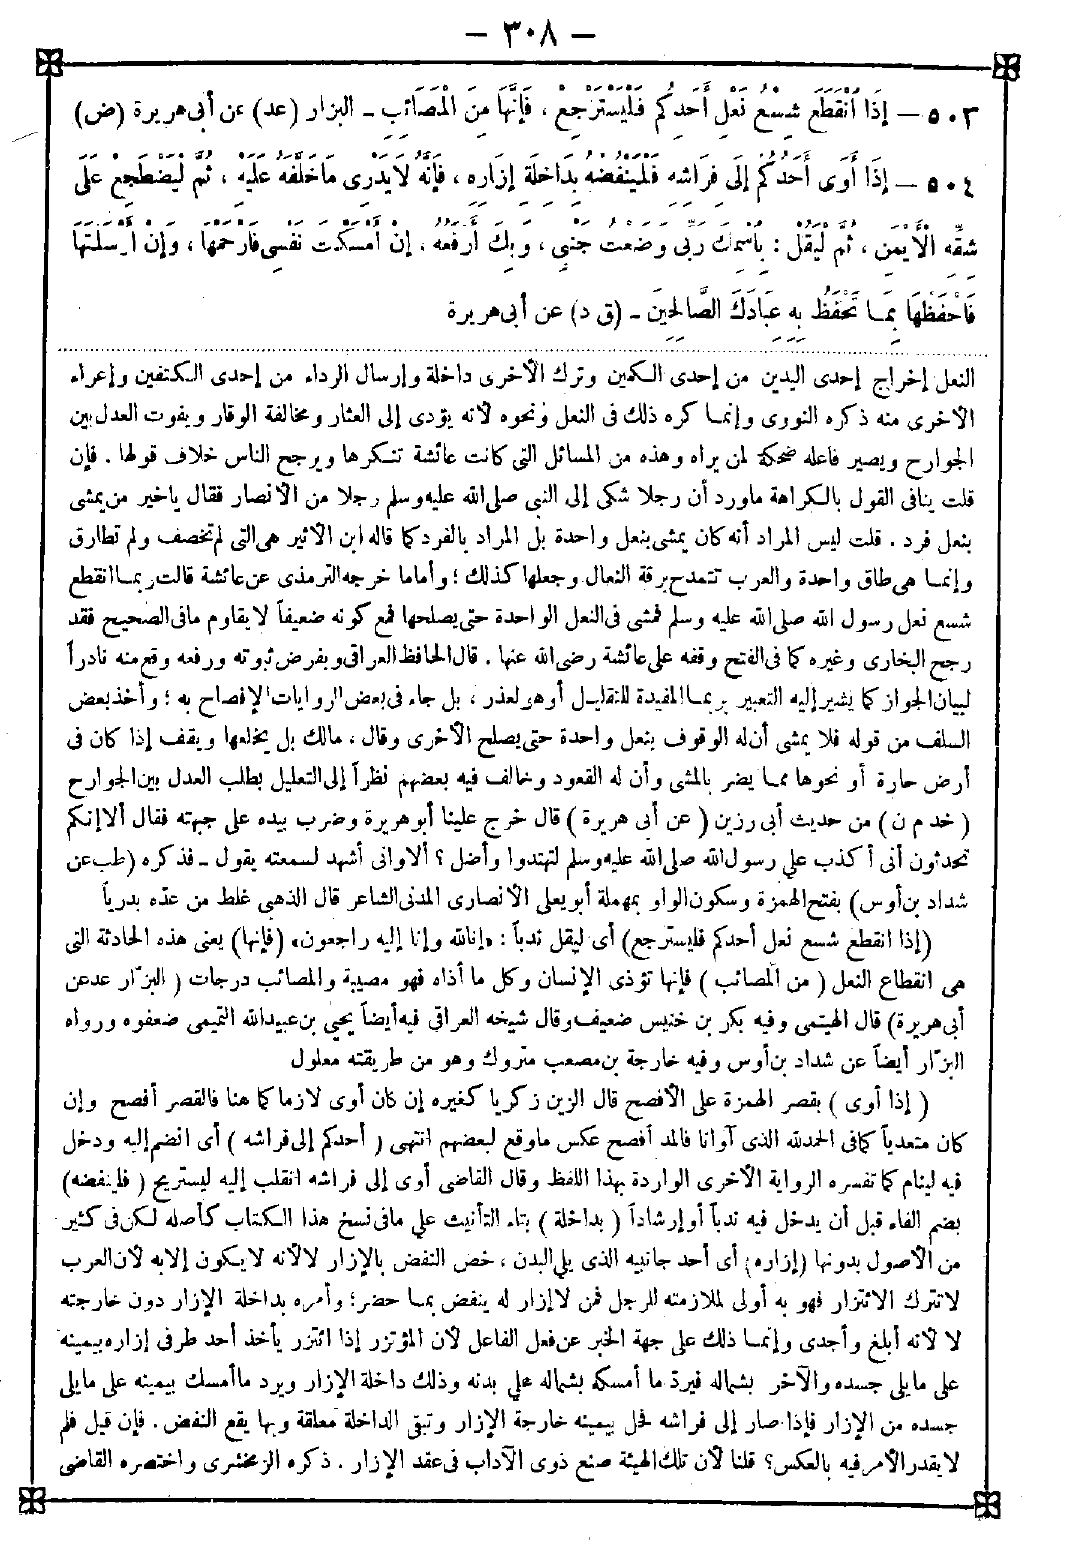 – ٣٠٨ –
٥٠٣ — إِذَا انْقَطَعَ شِسْعُ نَعْلِ أَحَدِكُمْ فَلْيَسْتَرْجِعْ ، فَإِنَّهَا مِنَ الْمَصَائِبِ - البزار (عد) عن أبى هريرة (ض)
٥٠٤ — إِذَا أَوَى أَحَدُكُمْ إِلَى فِرَاشِهِ فَلْيَنْفُضْهُ بِدَاخِلَةِ إِزَارِهِ ، فَإِنَّهُ لَا يَدْرِى مَا خَلَّفَهُ عَلَيْهِ ، ثُمَّ لْيَضْطَجِعْ عَلَى
شِقِّهِ الْأَيْمَنِ ، ثُمَّ لْيَقُلْ : بِاسْمِكَ رَبِّى وَضَعْتُ جَنْبِى ، وَبِكَ أَرْفَعُهُ ، إِنْ أَمْسَكْتَ نَفْسِى فَارْحَمْهَا ، وَإِنْ أَرْسَلْتَهَا
فَاحْفَظْهَا بِمَا تَحْفَظُ بِهِ عِبَادَكَ الصَّالِحِينَ - (ق د) عن أبى هريرة
النعل إخراج إحدى اليدين من إحدى الكمين وترك الأخرى داخلة وإرسال الرداء من إحدى الكتفين وإعراء
الأخرى منه ذكره النووى وإنما كره ذلك فى النعل ونحوه لأنه يؤدى إلى العثار ومخالفة الوقار ويفوت العدل بين
الجوارح ويصير فاعله ضحكة لمن يراه وهذه من المسائل التى كانت عائشة تنكرها ويرجح الناس خلاف قولها . فإن
قلت ينافى القول بالكراهة ماورد أن رجلا شكى إلى النبى صلى الله عليه وسلم رجلا من الأنصار فقال ياخير من يمشى
بنعل فرد . قلت ليس المراد أنه كان يمشى بنعل واحدة بل المراد بالفرد كما قاله ابن الأثير هى التى لم تخصف ولم تطارق
وإنما هى طاق واحدة والعرب تتمدح برقة النعال وجعلها كذلك ؛ وأماما خرجه الترمذى عن عائشة قالت ربما انقطع
شسع نعل رسول الله صلى الله عليه وسلم فمشى فى النعل الواحدة حتى يصلحها فمع كونه ضعيفاً لا يقاوم مافى الصحيح فقد
رجح البخارى وغيره كما فى الفتح وقفه على عائشة رضى الله عنها . قال الحافظ العراقى وبفرض ثبوته ورفعه وقع منه نادراً
لبيان الجواز كما يشير إليه التعبير بربما المفيدة للتقليل أو هو لعذر ، بل جاء فى بعض الروايات الإفصاح به ؛ وأخذ بعض
السلف من قوله فلا يمشى أن له الوقوف بنعل واحدة حتى يصلح الأخرى وقال ، مالك بل يخلعها ويقف إذا كان فى
أرض حارة أو نحوها مما يضر بالمشى وأن له القعود وخالف فيه بعضهم نظراً إلى التعليل بطلب العدل بين الجوارح
(خد م ن) من حديث أبى رزين (عن أبى هريرة) قال خرج علينا أبو هريرة وضرب بيده على جبهته فقال ألا إنكم
تحدثون أنى أكذب على رسول الله صلى الله عليه وسلم لتهتدوا وأضل ؟ ألا وانى أشهد لسمعته يقول - فذكره (طب عن
شداد بن أوس) بفتح الهمزة وسكون الواو بمهملة أبو يعلى الأنصارى المدنى الشاعر قال الذهبى غلط من عدّه بدرياً
(إذا انقطع شسع نعل أحدكم فليسترجع) أى ليقل ندباً : «إنا لله وإنا إليه راجعون» (فإنها) يعنى هذه الحادثة التى
هى انقطاع النعل (من المصائب) فإنها تؤذى الإنسان وكل ما أذاه فهو مصيبة والمصائب درجات (البزّار عد عن
أبى هريرة) قال الهيتمى وفيه بكر بن خنيس ضعيف وقال شيخه العراقى فيه أيضاً يحيى بن عبيد الله التيمى ضعفوه ورواه
البزّار أيضاً عن شداد بن أوس وفيه خارجة بن مصعب متروك وهو من طريقته معلول
(إذا أوى) بقصر الهمزة على الأفصح قال الزين زكريا كغيره إن كان أوى لازما كما هنا فالقصر أفصح وإن
كان متعدياً كما فى الحمد لله الذى آوانا فالمد أفصح عكس ماوقع لبعضهم انتهى (أحدكم إلى فراشه) أى انضم إليه ودخل
فيه لينام كما تفسره الرواية الأخرى الواردة بهذا اللفظ وقال القاضى أوى إلى فراشه انقلب إليه ليستريح (فلينفضه)
بضم الفاء قبل أن يدخل فيه ندباً أو إرشاداً (بداخلة) بتاء التأنيث على مافى نسخ هذا الكتاب كأصله لكن فى كثير
من الأصول بدونها (إزاره) أى أحد جانبيه الذى يلى البدن ، خص النفض بالإزار لا لأنه لا يكون إلا به لأن العرب
لا تترك الائتزار فهو به أولى لملازمته للرجل فمن لا إزار له ينفض بما حضر؛ وأمره بداخلة الإزار دون خارجته
لا لأنه أبلغ وأجدى وإنما ذلك على جهة الخبر عن فعل الفاعل لأن المؤتزر إذا ائتزر يأخذ أحد طرفى إزاره بيمينه
على مايلى جسده والآخر بشماله فيردّ ما أمسكه بشماله على بدنه وذلك داخلة الإزار ويرد ما أمسك بيمينه على مايلى
جسده من الإزار فإذا صار إلى فراشه فحل بيمينه خارجة الإزار وتبقى الداخلة معلقة وبها يقع النفض . فإن قيل فلم
لا يقدر الأمر فيه بالعكس؟ قلنا لأن تلك الهيئة صنع ذوى الآداب فى عقد الإزار . ذكره الزمخشرى واختصره القاضى